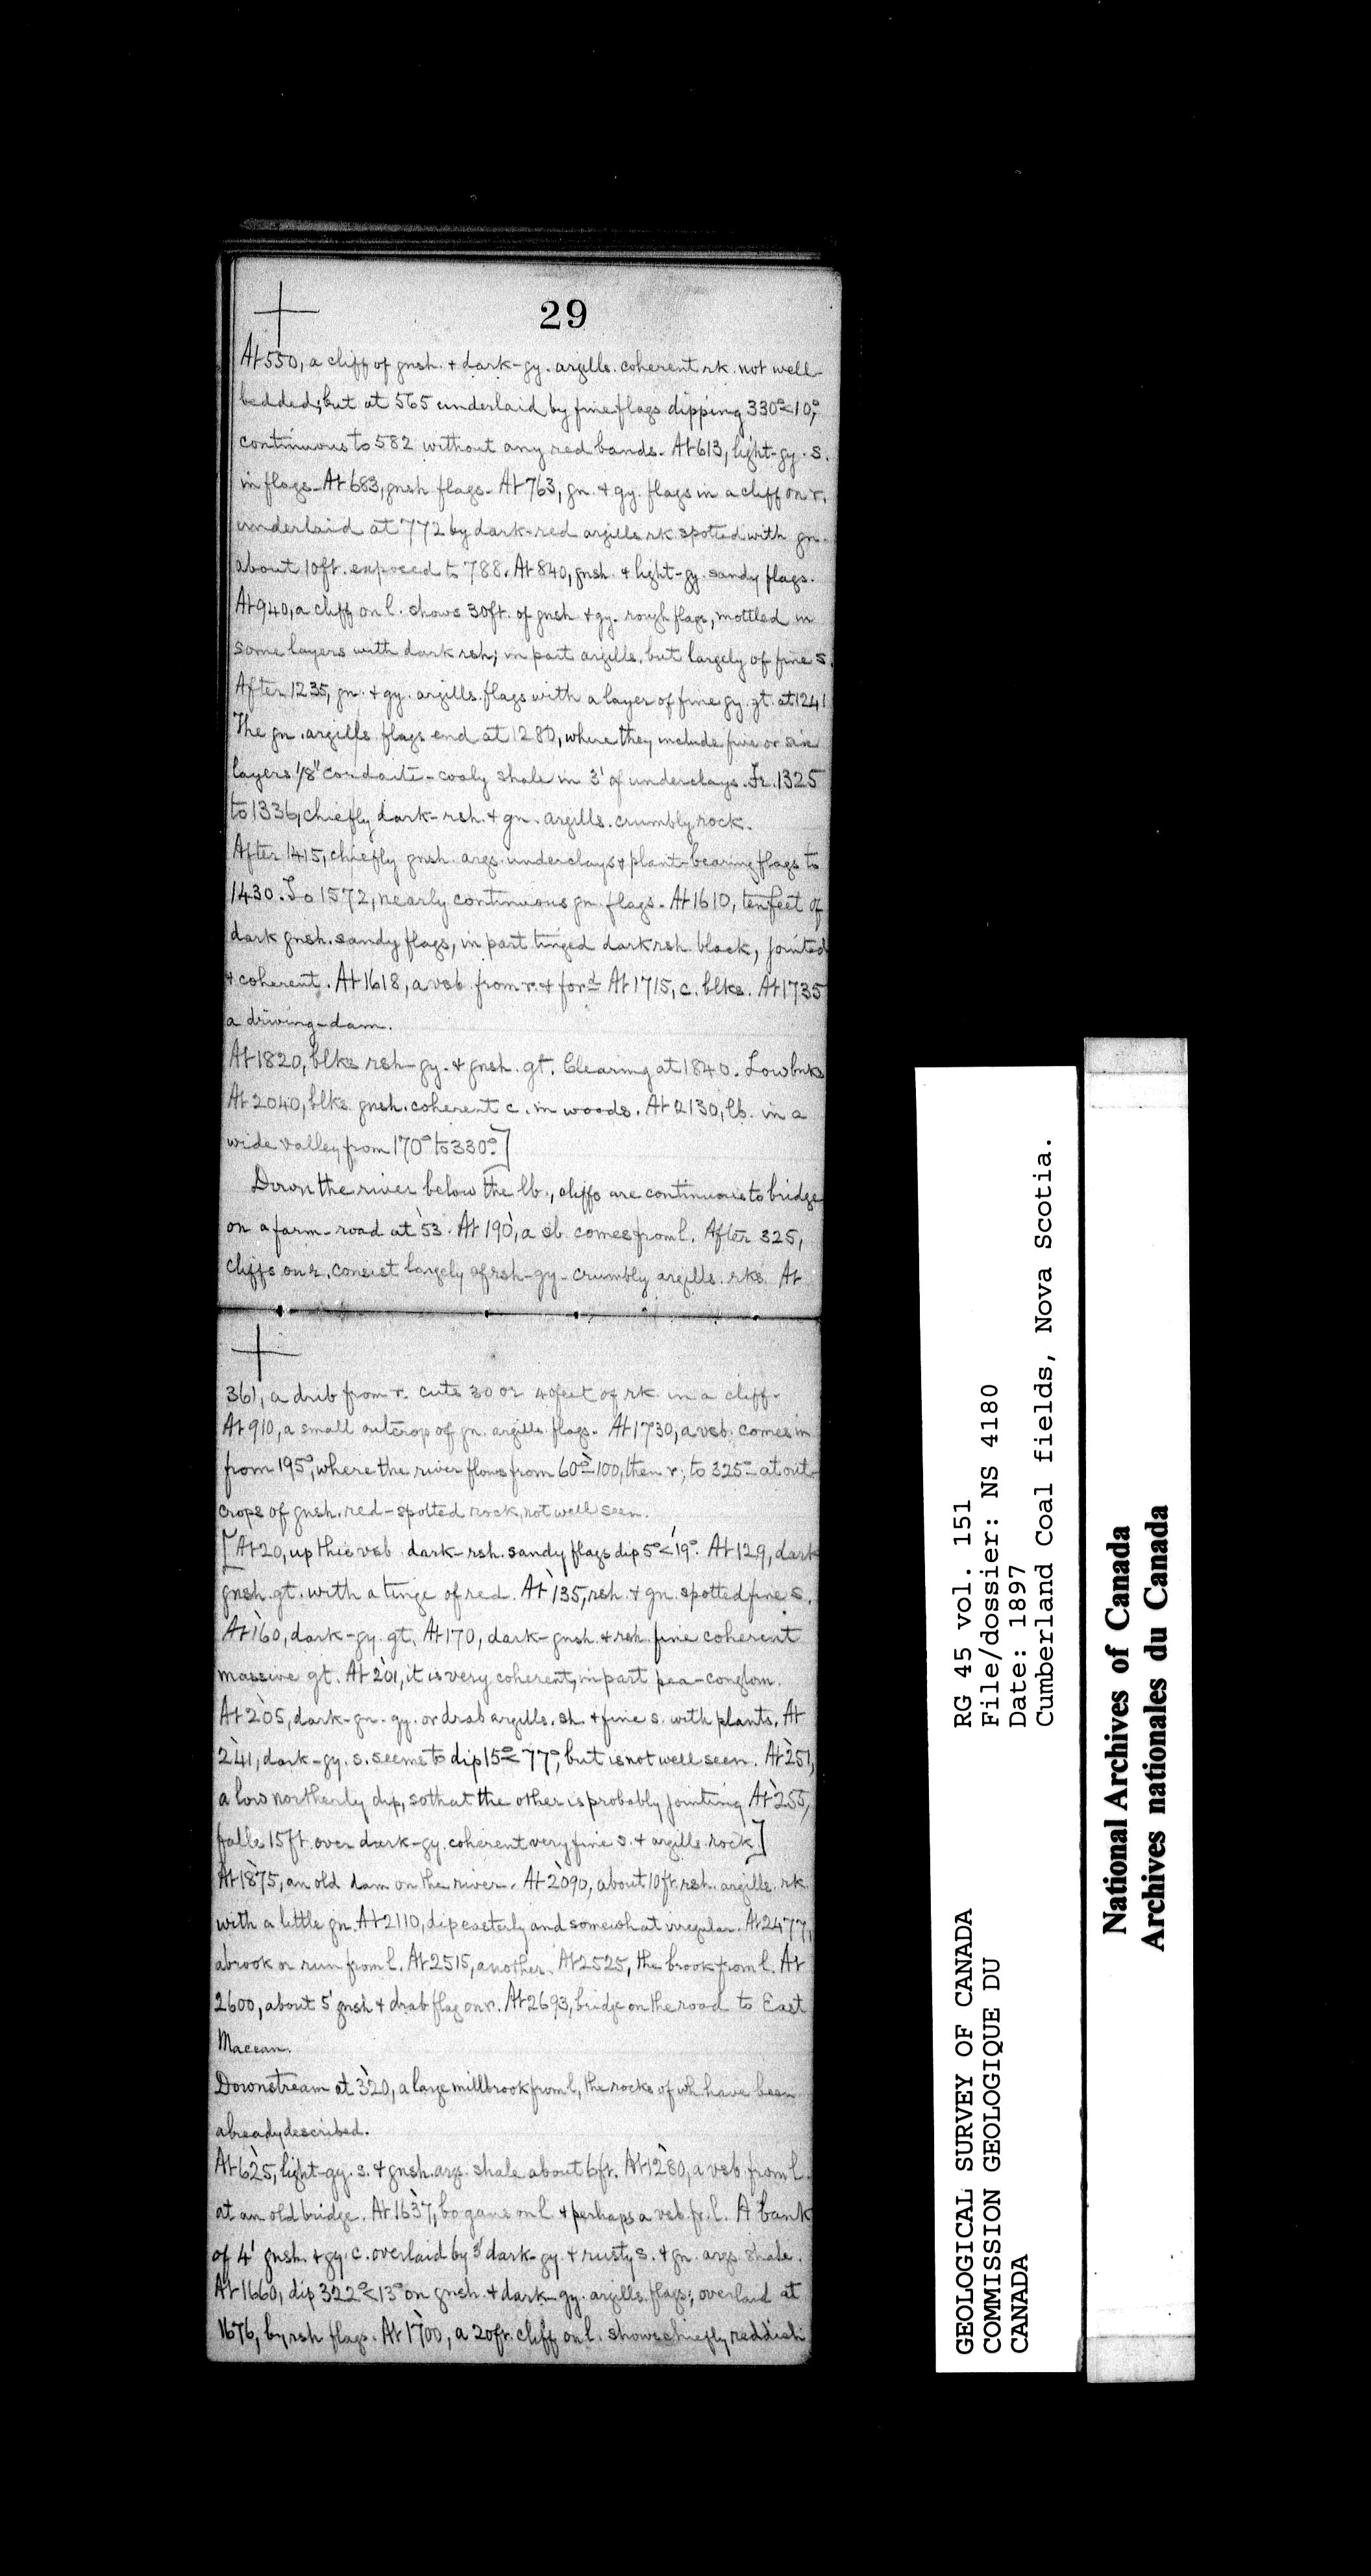 29
At 550, a cliff of gnsh. + dark-gy. argills. coherent rk. not well-
bedded; but at 565 underlaid by fine flags dipping 330°<10°,
continuous to 582 without any red bands. At 613, light-gy. s.
in flags. At 683, gnsh flags. At 763, gn. + gy. flags in a cliff on r.
underlaid at 772 by dark-red argills rk spotted with gn.
about 10ft. exposed to 788. At 840, gnsh. + light-gy. sandy flags.
At 940, a cliff on l. shows 30ft. of gnsh + gy. rough flags, mottled in
some layers with dark rsh; in part argills. but largely of fine s.
After 1235, gn. + gy. argills. flags with a layer of fine gy. gt. at 1241
The gn. argills. flags end at 1280, where they include five or six
layers 1/8" cordaite-coaly shale in 3' of underclays. Fr. 1325
to 1336, chiefly dark-rsh. + gn. argills. crumbly rock.
After 1415, chiefly gnsh. args. underclays + plant-bearing flags to
1430. To 1572, nearly continuous gn. flags. At 1610, ten feet of
dark gnsh. sandy flags, in part tinged dark rsh. black, jointed
+ coherent. At 1618, a vsb from r. + ford. At 1715, c. blks. At 1735
a driving-dam.
At 1820, blks rsh-gy. + gnsh. gt. Clearing at 1840. Low bnks
At 2040, blks. gnsh. coherent c. in woods. At 2130, lb. in a
wide valley from 170° to 330°.]
Down the river below the lb., cliffs are continuous to bridge
on a farm-road at 53. At 190, a sb. comes from l. After 325,
cliffs on r. consist largely of rsh-gy- crumbly argills. rks. At
361, a drib from r. cuts 30 or 40 feet of rk. in a cliff.
At 910, a small outcrop of gn. argills. flags. At 1730, a vsb. comes in
from 195°, where the river flows from 60°-100, then r; to 325° at out-
crops of gnsh. red-spotted rock, not well seen.
[At 20, up this vsb. dark-rsh. sandy flags dip 5°<19°. At 129, dark
gnsh. gt. with a tinge of red. At 135, rsh. + gn. spotted fine s.
At 160, dark-gy. gt. At 170, dark-gnsh. + rsh. fine coherent
massive gt. At 201, it is very coherent, in part pea-conglom.
At 205, dark-gn.-gy. or drab argills. sh. + fine s. with plants. At
241, dark-gy. s. seems to dip 15°<77°, but is not well seen. At 251,
a low northerly dip, so that the other is probably jointing. At 255,
falls 15ft. over dark-gy. coherent very fine s. + argills. rock]
At 1875, an old dam on the river. At 2090, about 10ft. rsh. argills. rk.
with a little gn. At 2110, dip easterly and somewhat irregular. At 2477,
a brook or run from l. At 2515, another. At 2525, the brook from l. At
2600, about 5' gnsh + drab flag on r. At 2693, bridge on the road to East
Maccan.
Downstream at 320, a large millbrook from l, the rocks of wh. have been
already described.
At 625, light-gy. s. + gnsh. args. shale about 6ft. At 1280, a vsb. from l.
at an old bridge. At 1637, bogans on l. + perhaps a vsb. fr. l. A bank
of 4' gnsh. + gy. c. overlaid by 3' dark-gy. + rusty s. + gn. args. shale.
At 1660, dip 322°<13° on gnsh. + dark-gy. argills. flags; overlaid at
1676, by rsh flags. At 1700, a 20ft. cliff on l. shows chiefly reddish
GEOLOGICAL SURVEY OF CANADA
COMMISSION GEOLOGIQUE DU
CANADA
RG 45 vol. 151
File/dossier: NS 4180
Date: 1897
Cumberland Coal fields, Nova Scotia.
National Archives of Canada
Archives nationales du Canada